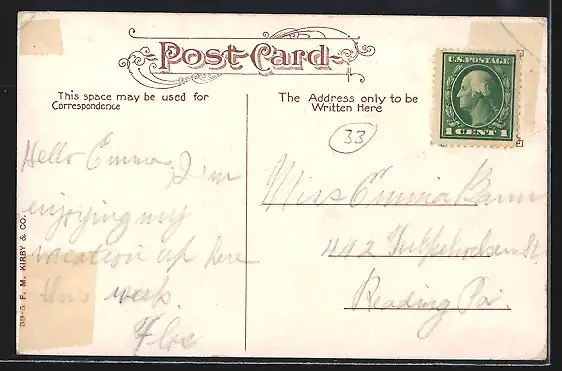 Post Card
This space may be used for
Correspondence
The Address only to be
Written Here
U.S. POSTAGE
1 CENT 1
33
Hello Emma, I'm
enjoying my
vacation up here
this week.
Flo
Miss Emma Bann
412 Tulpehocken St
Reading Pa.
39-5 F. M. KIRBY & CO.